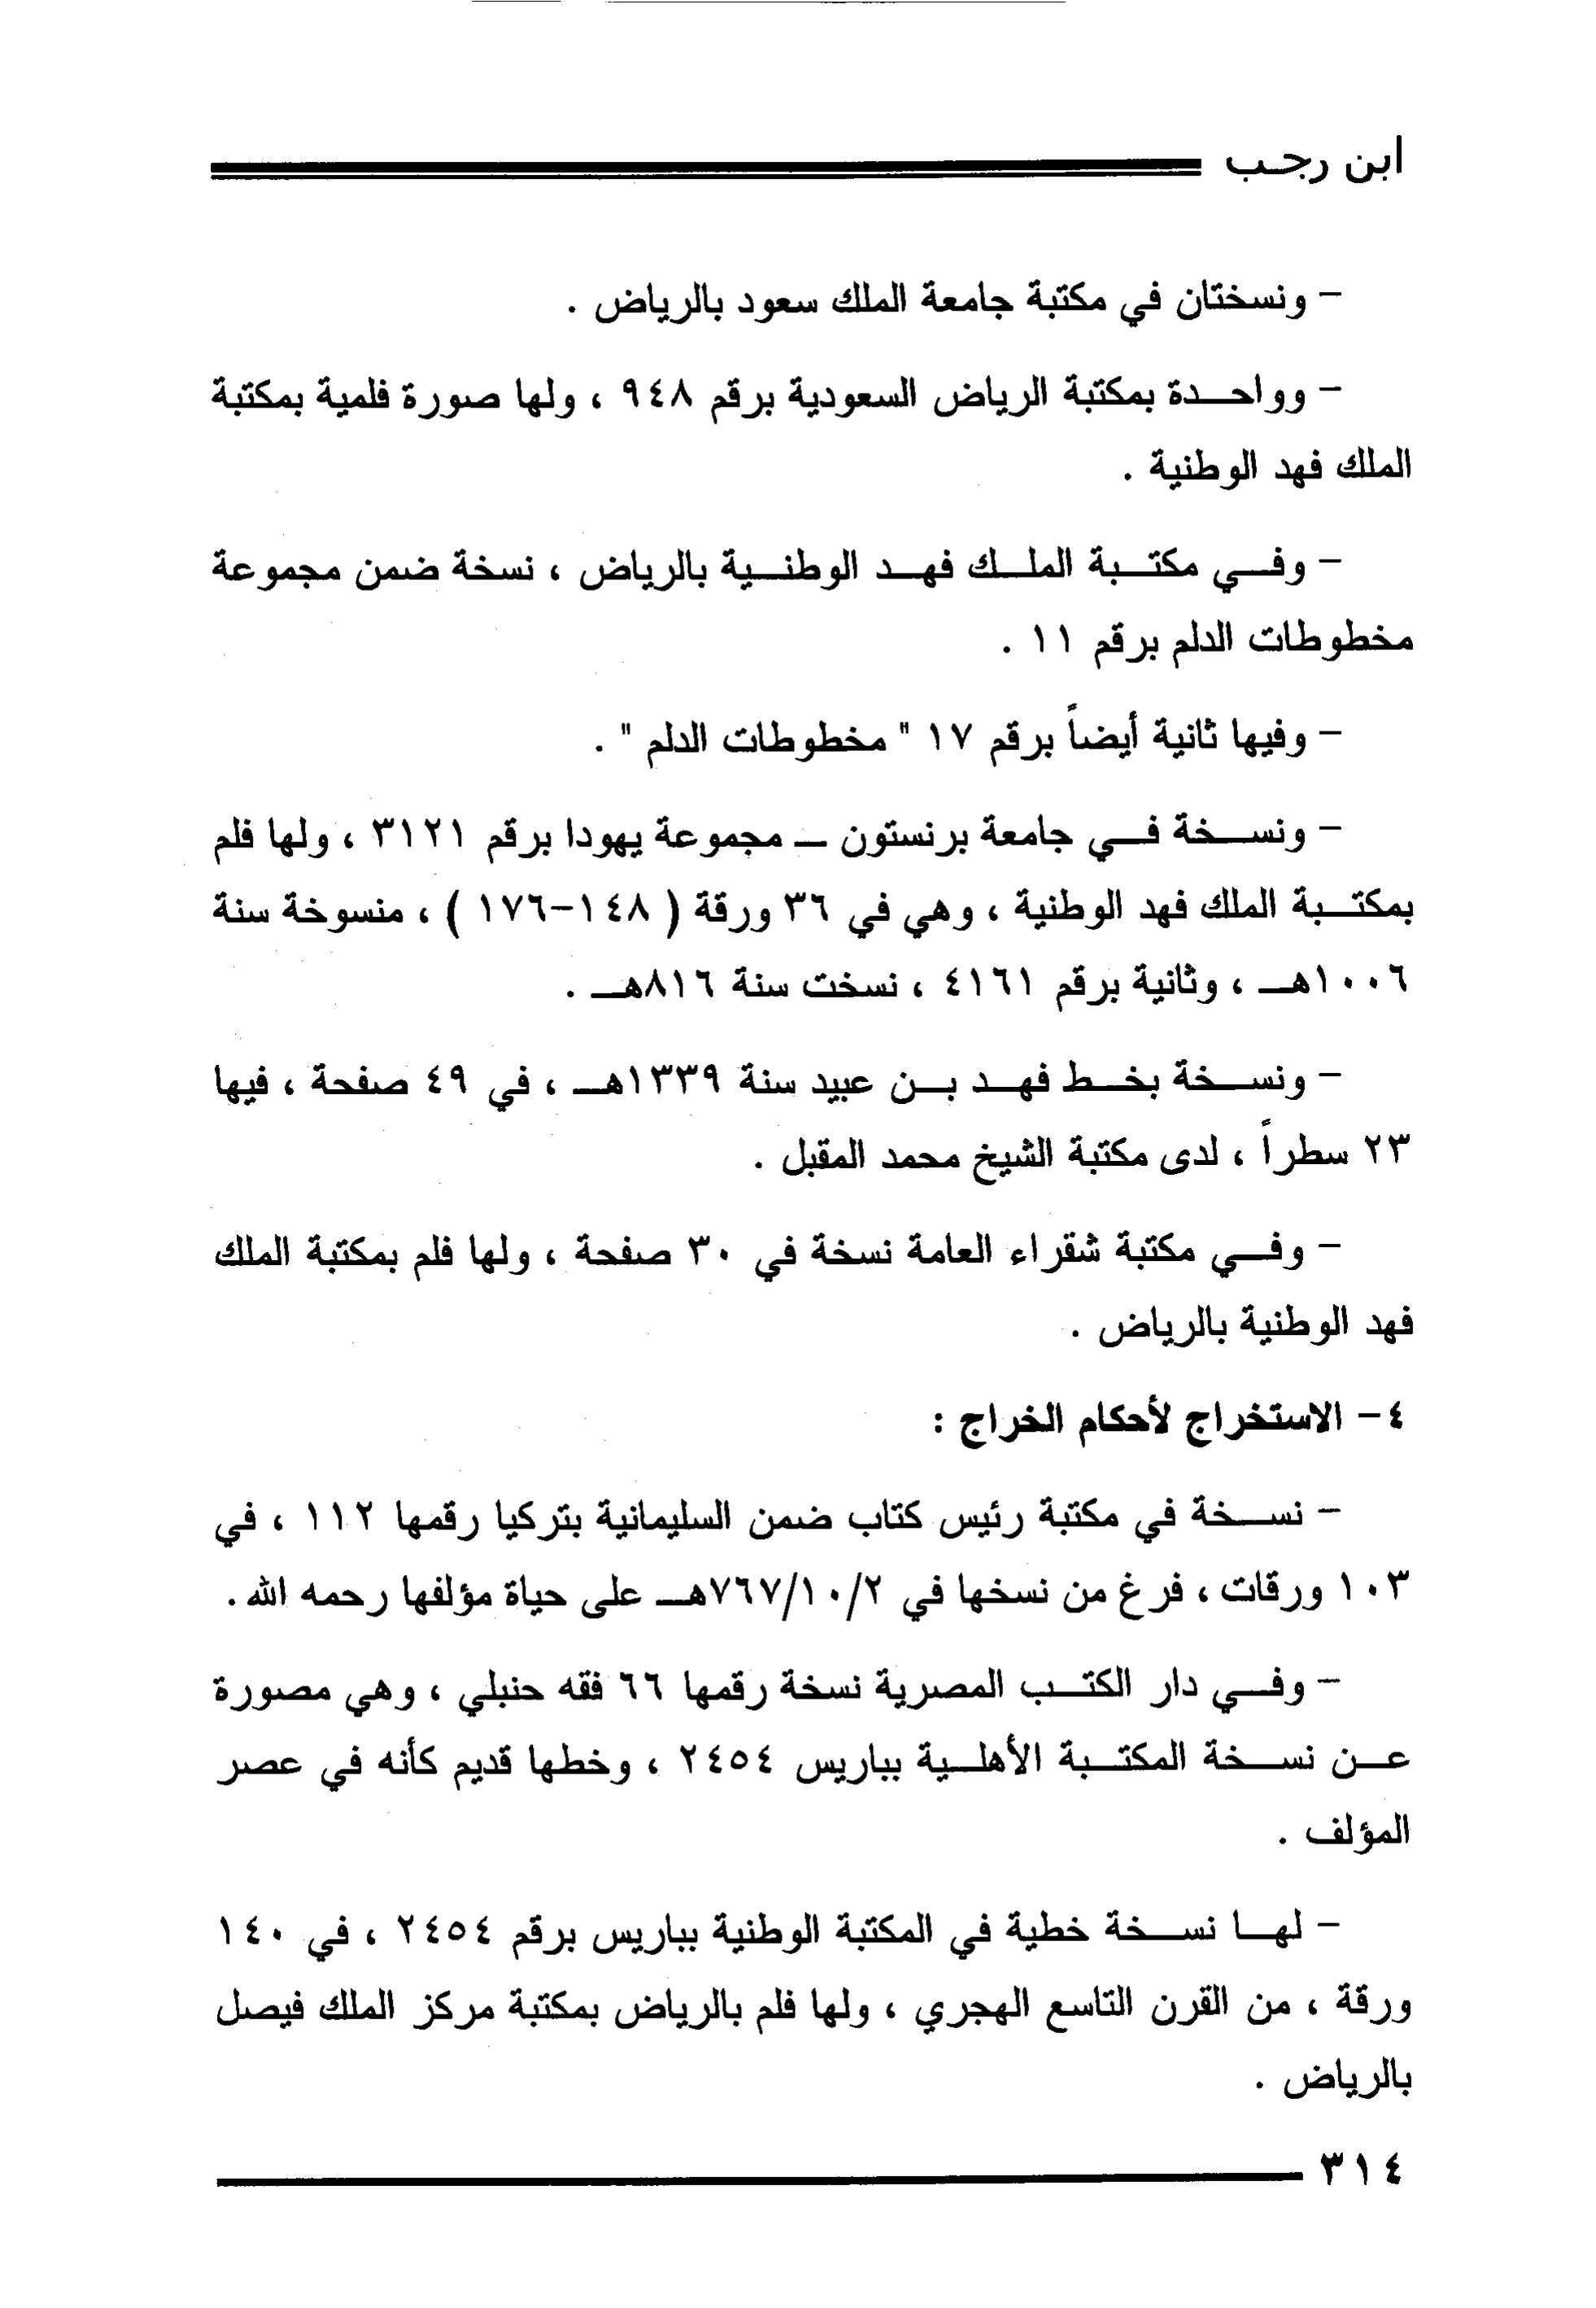 ابن رجب
- ونسختان في مكتبة جامعة الملك سعود بالرياض .
- وواحدة بمكتبة الرياض السعودية برقم ٩٤٨ ، ولها صورة فلمية بمكتبة
الملك فهد الوطنية .
- وفي مكتبة الملك فهد الوطنية بالرياض ، نسخة ضمن مجموعة
مخطوطات الدلم برقم ١١ .
- وفيها ثانية أيضاً برقم ١٧ " مخطوطات الدلم " .
- ونسخة في جامعة برنستون – مجموعة يهودا برقم ٣١٢١ ، ولها فلم
بمكتبة الملك فهد الوطنية ، وهي في ٣٦ ورقة ( ١٤٨-١٧٦ ) ، منسوخة سنة
١٠٠٦هـ ، وثانية برقم ٤١٦١ ، نسخت سنة ٨١٦هـ .
- ونسخة بخط فهد بن عبيد سنة ١٣٣٩هـ ، في ٤٩ صفحة ، فيها
٢٣ سطراً ، لدى مكتبة الشيخ محمد المقبل .
- وفي مكتبة شقراء العامة نسخة في ٣٠ صفحة ، ولها فلم بمكتبة الملك
فهد الوطنية بالرياض .
٤- الاستخراج لأحكام الخراج :
- نسخة في مكتبة رئيس كتاب ضمن السليمانية بتركيا رقمها ١١٢ ، في
١٠٣ ورقات ، فرغ من نسخها في ٧٦٧/١٠/٢هـ على حياة مؤلفها رحمه الله .
- وفي دار الكتب المصرية نسخة رقمها ٦٦ فقه حنبلي ، وهي مصورة
عن نسخة المكتبة الأهلية بباريس ٢٤٥٤ ، وخطها قديم كأنه في عصر
المؤلف .
- لها نسخة خطية في المكتبة الوطنية بباريس برقم ٢٤٥٤ ، في ١٤٠
ورقة ، من القرن التاسع الهجري ، ولها فلم بالرياض بمكتبة مركز الملك فيصل
بالرياض .
٣١٤